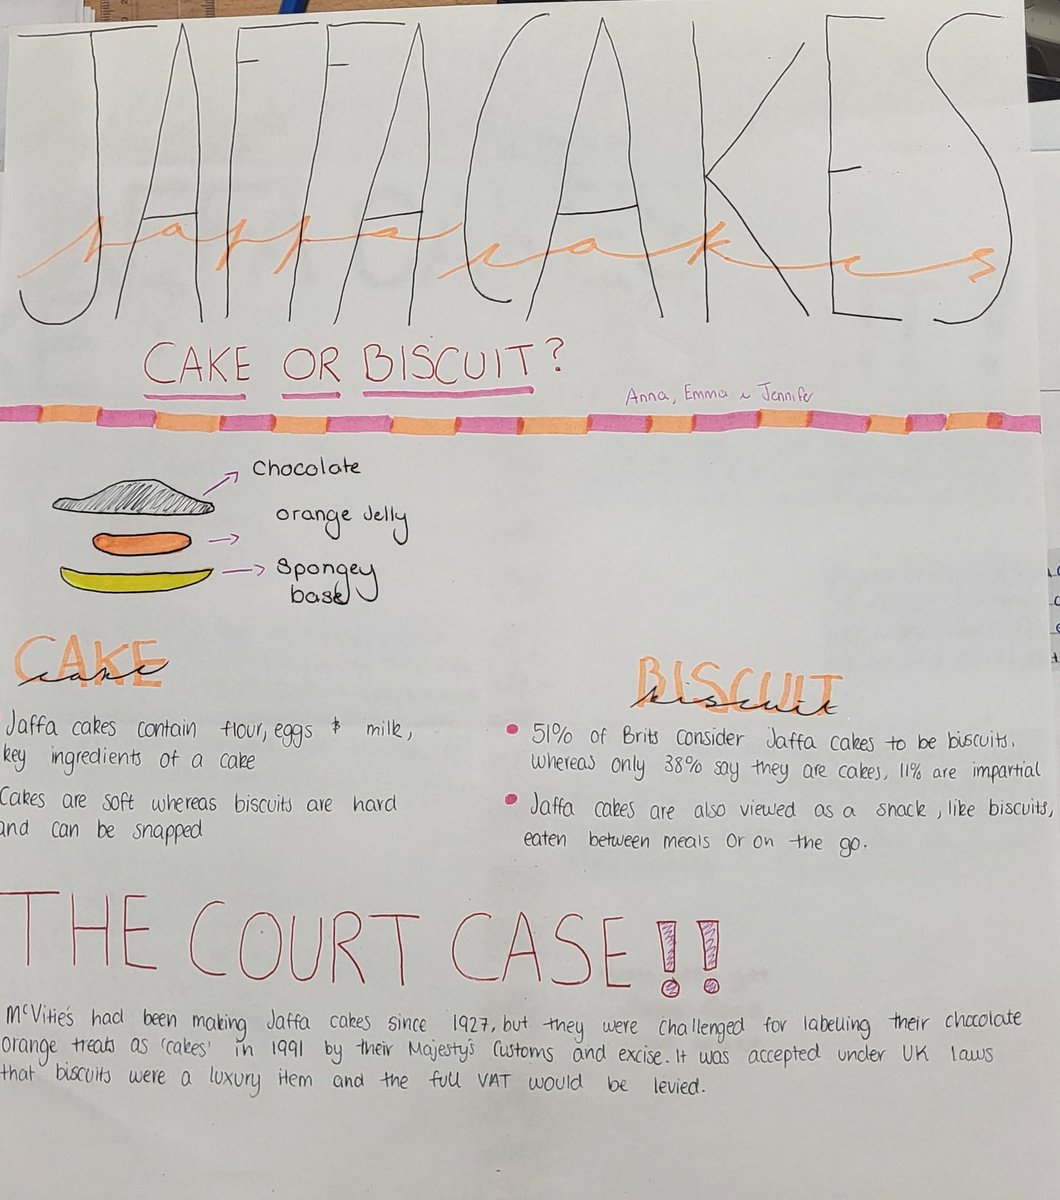 JAFFA CAKES
Jaffa cakes
CAKE OR BISCUIT?
Anna, Emma ~ Jennifer
Chocolate
orange Jelly
Spongey
base
CAKE
cake
Jaffa cakes contain flour, eggs & milk,
key ingredients of a cake
Cakes are soft whereas biscuits are hard
and can be snapped
BISCUIT
biscuit
• 51% of Brits consider Jaffa cakes to be biscuits.
whereas only 38% say they are cakes, 11% are impartial
• Jaffa cakes are also viewed as a snack, like biscuits,
eaten between meals or on the go.
THE COURT CASE!!
McVitie's had been making Jaffa cakes since 1927, but they were challenged for labelling their chocolate
orange treats as 'cakes' in 1991 by their Majesty's Customs and excise. It was accepted under UK laws
that biscuits were a luxury item and the full VAT would be levied.